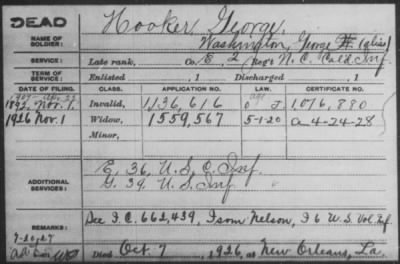 DEAD
Hooker, George.
NAME OF SOLDIER:
Washington, George H (alias)
SERVICE:
Late rank, Co. E, 2 Reg't N.C. Cold. Inf.
TERM OF SERVICE:
Enlisted , 1 Discharged , 1
DATE OF FILING. CLASS. APPLICATION NO. LAW. CERTIFICATE NO.
1892, Nov. 1. Invalid, 1136,616 J. 1076,880
1926 Nov. 1 Widow, 1559,567 5-1-20 a 4-24-28
Minor,
ADDITIONAL SERVICES:
E. 36, U.S.C. Inf.
G. 39, U.S. Inf
REMARKS:
See I.C. 662,439, Isom Nelson, I 6 U.S. Vol. Inf.
Died Oct. 7, 1926, at New Orleans, La,